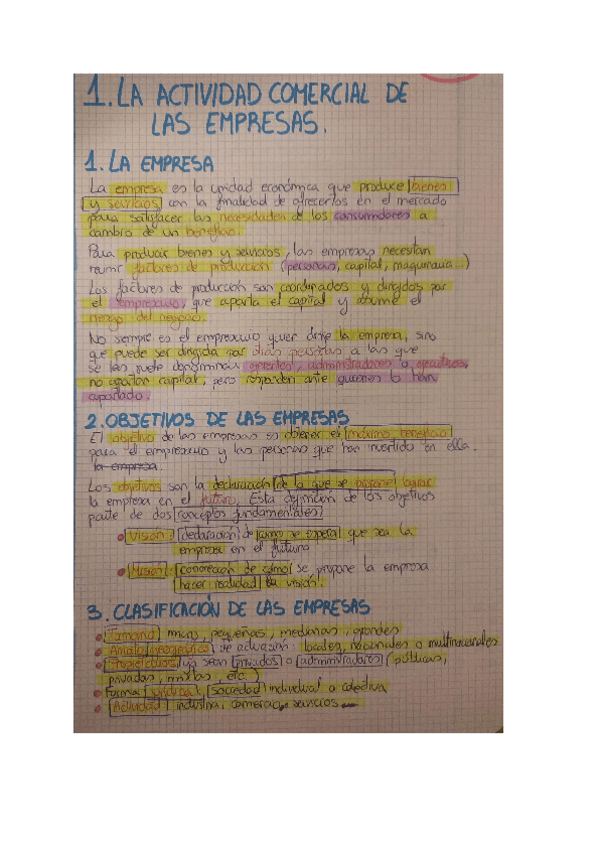 1. LA ACTIVIDAD COMERCIAL DE
LAS EMPRESAS.
1. LA EMPRESA
La empresa es la unidad económica que produce bienes
y servicios con la finalidad de ofrecerlos en el mercado
para satisfacer las necesidades de los consumidores a
cambio de un beneficio.
Para producir bienes y servicios, las empresas necesitan
reunir factores de producción (personas, capital, maquinaria...)
Los factores de producción son coordinados y dirigidos por
el empresario, que aporta el capital y asume el
riesgo del negocio.
No siempre es el empresario quien dirige la empresa, sino
que puede ser dirigida por otras personas a las que
se les suele denominar gerentes, administradores o ejecutivos,
no aportan capital, pero responden ante quienes lo han
aportado.
2. OBJETIVOS DE LAS EMPRESAS
El objetivo de las empresas es obtener el máximo beneficio
para el empresario y las personas que han invertido en ella.
la empresa.
Los objetivos son la declaración de lo que se propone lograr
la empresa en el futuro. Esta definición de los objetivos
parte de dos conceptos fundamentales:
Visión: declaración de como se espera que sea la
empresa en el futuro
Misión: concreción de cómo se propone la empresa
hacer realidad la visión.
3. CLASIFICACIÓN DE LAS EMPRESAS
Tamaño: micro, pequeñas, medianas, grandes
Ámbito geográfico de actuación: locales, nacionales o multinacionales
ya sean privados o administradores (públicas,
privadas, mixtas, etc.)
Forma jurídica: sociedad individual o colectiva
Actividad: industria, comercio, servicios